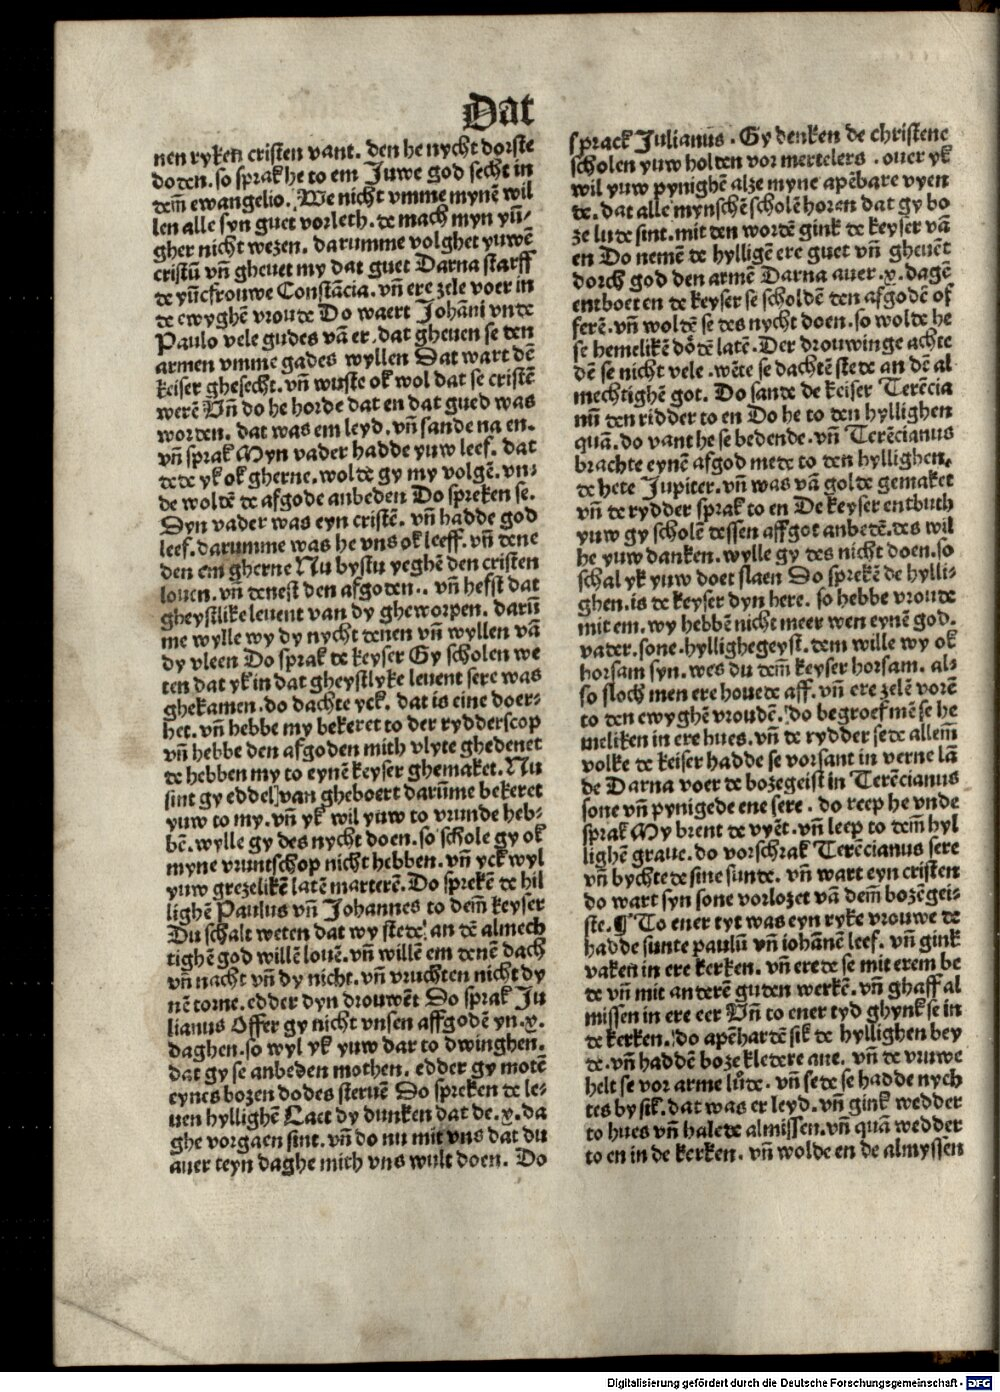 Dat
nen ryken cristen vant. den he nycht dorste
doten. so sprak he to em Juwe god secht in
dem̄ ewangelio. We nicht vmme mynē wil
len alle syn guet vorleth. de mach myn yū⸗
gher nicht wezen. darumme volghet yuwē
cristū vn̄ gheuet my dat guet Darna starff
de yūcfrouwe Constācia. vn̄ ere zele voer in
de ewyghē vroude Do waert Johāni vnde
Paulo vele gudes vā er. dat gheuen se den
armen vmme gades wyllen Dat wart dē
keiser ghesecht. vn̄ wuste ok wol dat se cristē
werē Vn̄ do he horde dat en dat gued was
worden. dat was em leyd. vn̄ sande na en.
vn̄ sprak Myn vader hadde yuw leef. dat
dede yk ok gherne. wolde gy my volgē. vn⸗
de woldē de afgode anbeden Do spreken se.
Dyn vader was eyn cristē. vn̄ hadde god
leef. darumme was he vns ok leeff. vn̄ dene
den em gherne Nu bystu yeghē den cristen
louen. vn̄ denest den afgoden.. vn̄ hefst dat
gheystlike leuent van dy gheworpen. darū
me wylle wy dy nycht denen vn̄ wyllen vā
dy vleen Do sprak de keyser Gy scholen we
ten dat yk in dat gheystlyke leuent sere was
ghekamen. do dachte yck. dat is eine doer⸗
het. vn̄ hebbe my bekeret to der rydderscop
vn̄ hebbe den afgoden mith vlyte ghedenet
de hebben my to eynē keyser ghemaket. Nu
sint gy eddel van gheboert darūme bekeret
yuw to my. vn̄ yk wil yuw to vrunde heb⸗
bē. wylle gy des nycht doen. so schole gy ok
myne vruntschop nicht hebben. vn̄ yck wyl
yuw grezelikē latē marterē. Do sprekē de hil
lighē Paulus vn̄ Johannes to dem̄ keyser
Du schalt weten dat wy stede an dē almech
tighē god willē louē. vn̄ willē em denē dach
vn̄ nacht vn̄ dy nicht. vn̄ vruchten nicht dy
nē torne. edder dyn drouwēt Do sprak Ju
lianus Offer gy nicht vnsen affgodē yn .x.
daghen. so wyl yk yuw dar to dwinghen.
dat gy se anbeden mothen. edder gy motē
eynes bozen dodes steruē Do spreken de le⸗
uen hyllighē Laet dy dunken dat de .x. da
ghe vorgaen sint. vn̄ do nu mit vns dat du
auer teyn daghe mith vns wult doen. Do
sprack Julianus. Gy denken de christene
scholen yuw holden vor mertelers. ouer yk
wil yuw pynighē alze myne apēbare vyen
de. dat alle mynschē scholē horen dat gy bo
ze lude sint. mit den wordē gink de keyser vā
en Do nemē de hylligē ere guet vn̄ gheuēt
dorch god den armē Darna auer .x. dagē
entboet en de keyser se scholdē den afgodē of
ferē. vn̄ woldē se des nycht doen. so wolde he
se hemelikē dōdē latē. Der drouwinge achte
dē se nicht vele. wēte se dachtē stede an dē al
mechtighē got. Do sande de keiser Terēcia
nū den ridder to en Do he to den hyllighen
quā. do vant he se bedende. vn̄ Terēcianus
brachte eynē afgod mede to den hyllighen.
de hete Jupiter. vn̄ was vā golde gemaket
vn̄ de rydder sprak to en De keyser entbuth
yuw gy scholē dessen affgot anbedē. des wil
he yuw danken. wylle gy des nicht doen. so
schal yk yuw doet slaen Do sprekē de hylli⸗
ghen. is de keyser dyn here. so hebbe vroude
mit em. wy hebbē nicht meer wen eynē god.
vader. sone. hyllighegeyst. dem wille wy ok
horsam syn. wes du dem̄ keyser horsam. al⸗
so sloch men ere houede aff. vn̄ ere zelē vorē
to den ewyghē vroudē. do begroef mē se he
meliken in ere hues. vn̄ de rydder sede allem̄
volke de keiser hadde se vorsant in verne lā
de Darna voer de bozegeist in Terēcianus
sone vn̄ pynigede ene sere. do reep he vnde
sprak My brent de vyēt. vn̄ leep to dem̄ hyl
lighē graue. do vorschrak Terēcianus sere
vn̄ bychtede sine sunde. vn̄ wart eyn cristen
do wart syn sone vorlozet vā dem̄ bozēgei⸗
ste. ¶ To ener tyt was eyn ryke vrouwe de
hadde sunte paulū vn̄ iohānē leef. vn̄ gink
vaken in ere kerken. vn̄ erede se mit erem be
de vn̄ mit anderē guden werkē. vn̄ ghaff al
missen in ere eer Vn̄ to ener tyd ghynk se in
de kerken. do apēbardē sik de hyllighen bey
de. vn̄ haddē boze kledere ane. vn̄ de vruwe
helt se vor arme lůde. vn̄ sede se hadde nych
tes by sik. dat was er leyd. vn̄ gink wedder
to hues vn̄ halede almissen. vn̄ quā wedder
to en in de kerken. vn̄ wolde en de almyssen
Digitalisierung gefördert durch die Deutsche Forschungsgemeinschaft - DFG